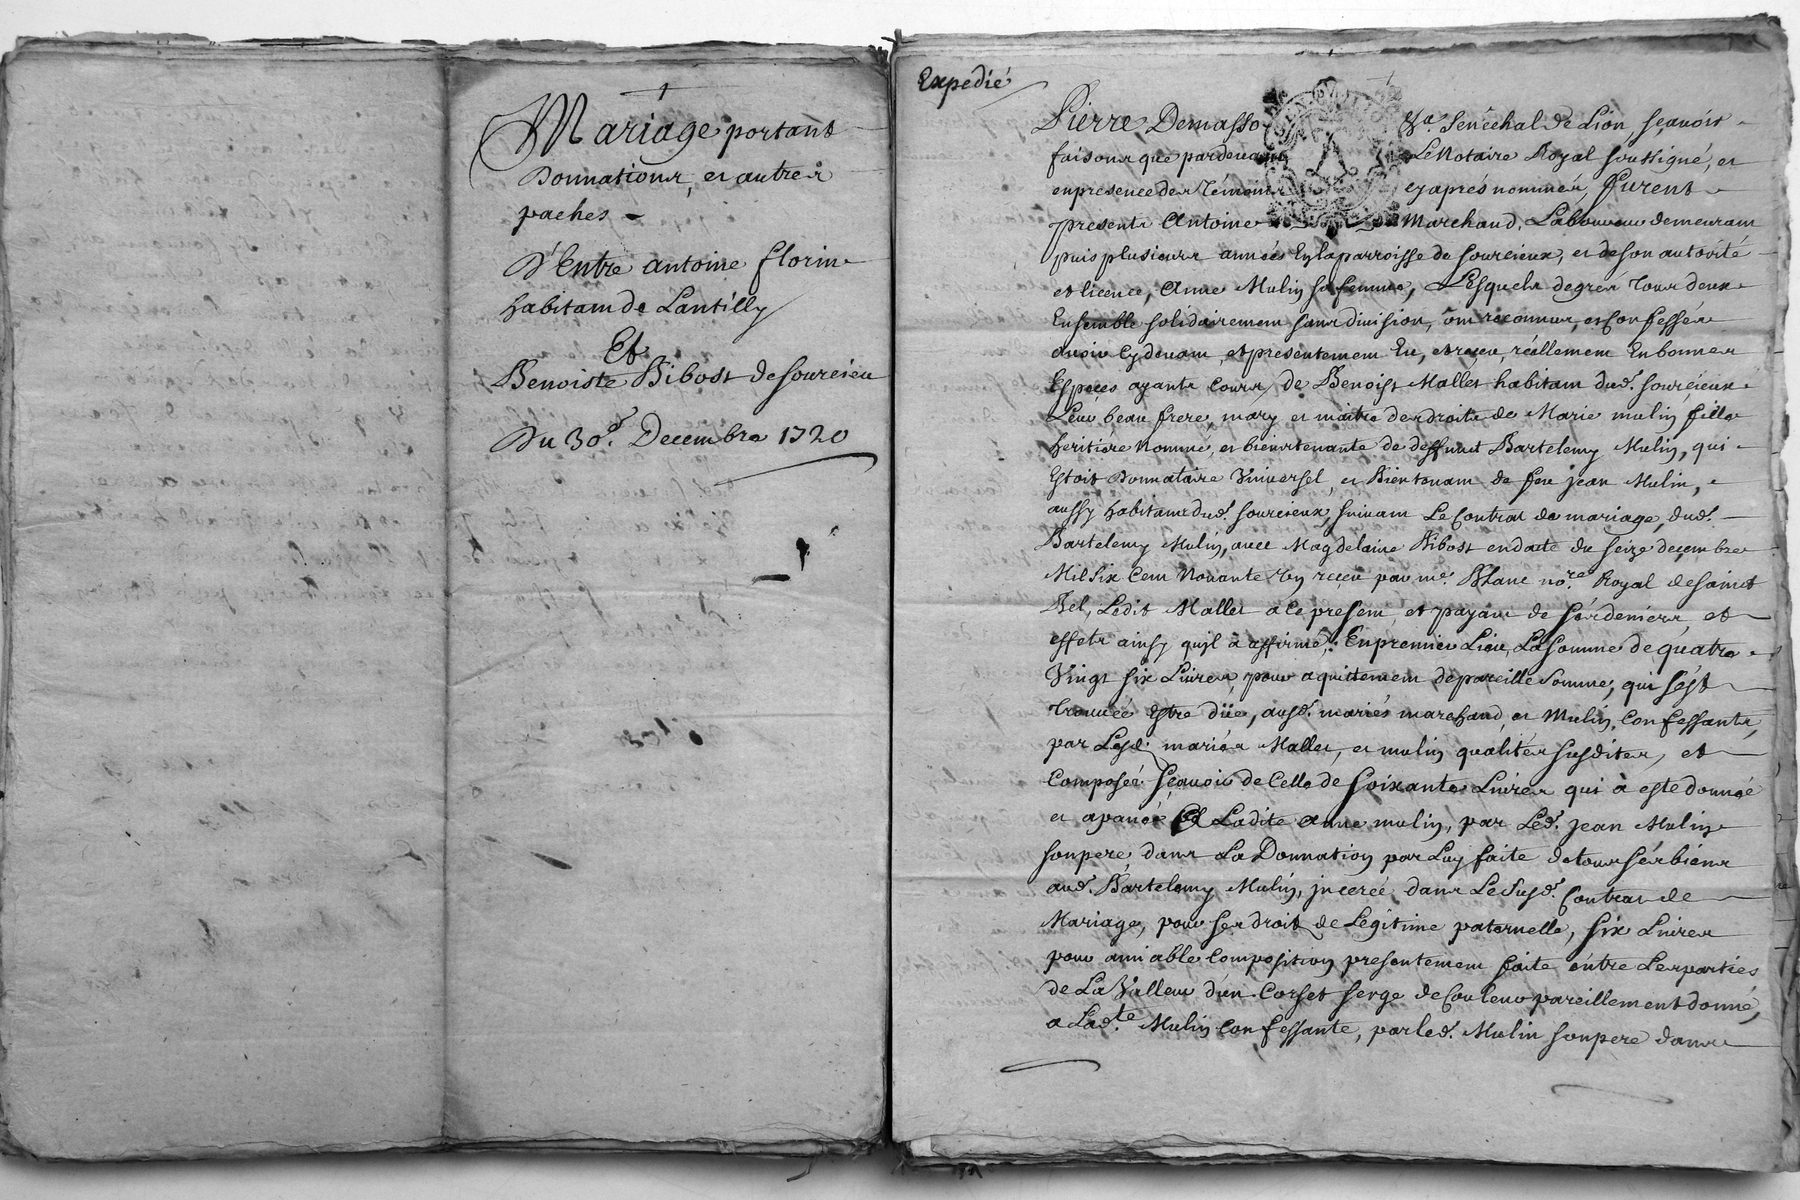 Mariage portant
Donnations, et autres
paches -
D'Entre antoine florin
habitant de Lantilly
Et
Benoiste Bibost de sourcieu
Du 30e. Decembre 1720
Expedié
Pierre Demasso Sénéchal de Lion, sçavoir
faisons que pardevant Le Notaire Royal soussigné, et
en presence des Témoins cyaprés nommés, furent
presents Antoine Marchand, Laboureur demeurant
puis plusieurs années En la parroisse de sourcieux, et de son autorité
et licence, Anne Mulin sa femme, Lesquels de grés tous deux
Ensemble solidairement sans division, ont reconnus, et Confessés
avoir Cydevant, et presentement Eu, et receu, réellement En bonnes
Especes ayants Cours, de Benoist Mallet habitant dud. sourcieux
Leur beau frere, mary et maitre des droits de Marie mulin fille
heritiere Nommé, et bientenante de deffunct Bartelemy Mulin, qui
Estoit Donnataire Universel, et Bientenant de feu jean Mulin,
aussy habitants dud. sourcieux, suivant Le Contrat de mariage, dud.
Bartelemy Mulin, avec Magdelaine Bibost en datte du seize decembre
Mil six Cent Nonante Un receu par me. Blanc nore. Royal de sainct
Bel, Ledit Mallet a ce present et payant de ses deniers, et
effets ainsy quil à affirmé. En premier Lieu, La somme de quatre
Vingt six Livres, pour aquittement de pareille somme, qui s'est
Trouvée Estre düe, ausd. mariés marchand et Mulin, Confessants,
par Lesd. mariés Mallet, et mulin qualités susdites, et
Composée sçavoir de Celle de soixante Livres qui à esté donnée
et apanée A Ladite anne mulin, par Led. jean Mulin
son pere, dans La Donnation par Luy faite de tous ses biens
aud. Bartelemy Mulin, jncerée dans Le susd. Contrat de
Mariage, pour ses droits de Légitime paternelle, six Livres
pour amiable Composition presentement faite entre Les parties
de La Valleur d'un Corset serge de Couleur pareillement donné,
a Lad.te Mulin Confessante, par led. Mulin son pere dans